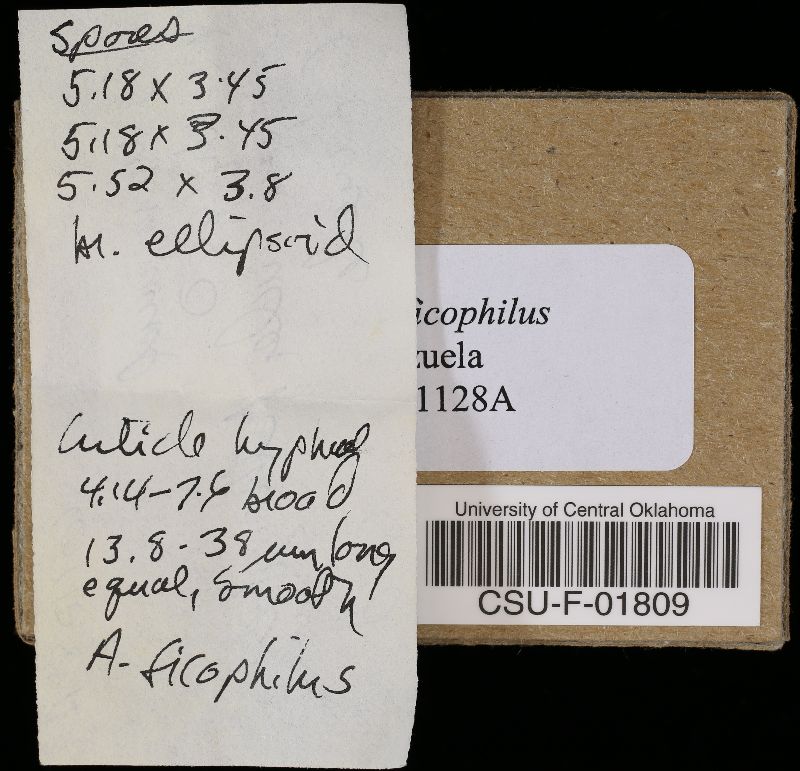 Spores
5.18 x 3.45
5.18 x 3.45
5.52 x 3.8
br. ellipsoid
Cuticle hyphae
4.14-7.6 broad
13.8-38 um long
equal, smooth
A. ficophilus
ficophilus
zuela
1128A
University of Central Oklahoma
CSU-F-01809